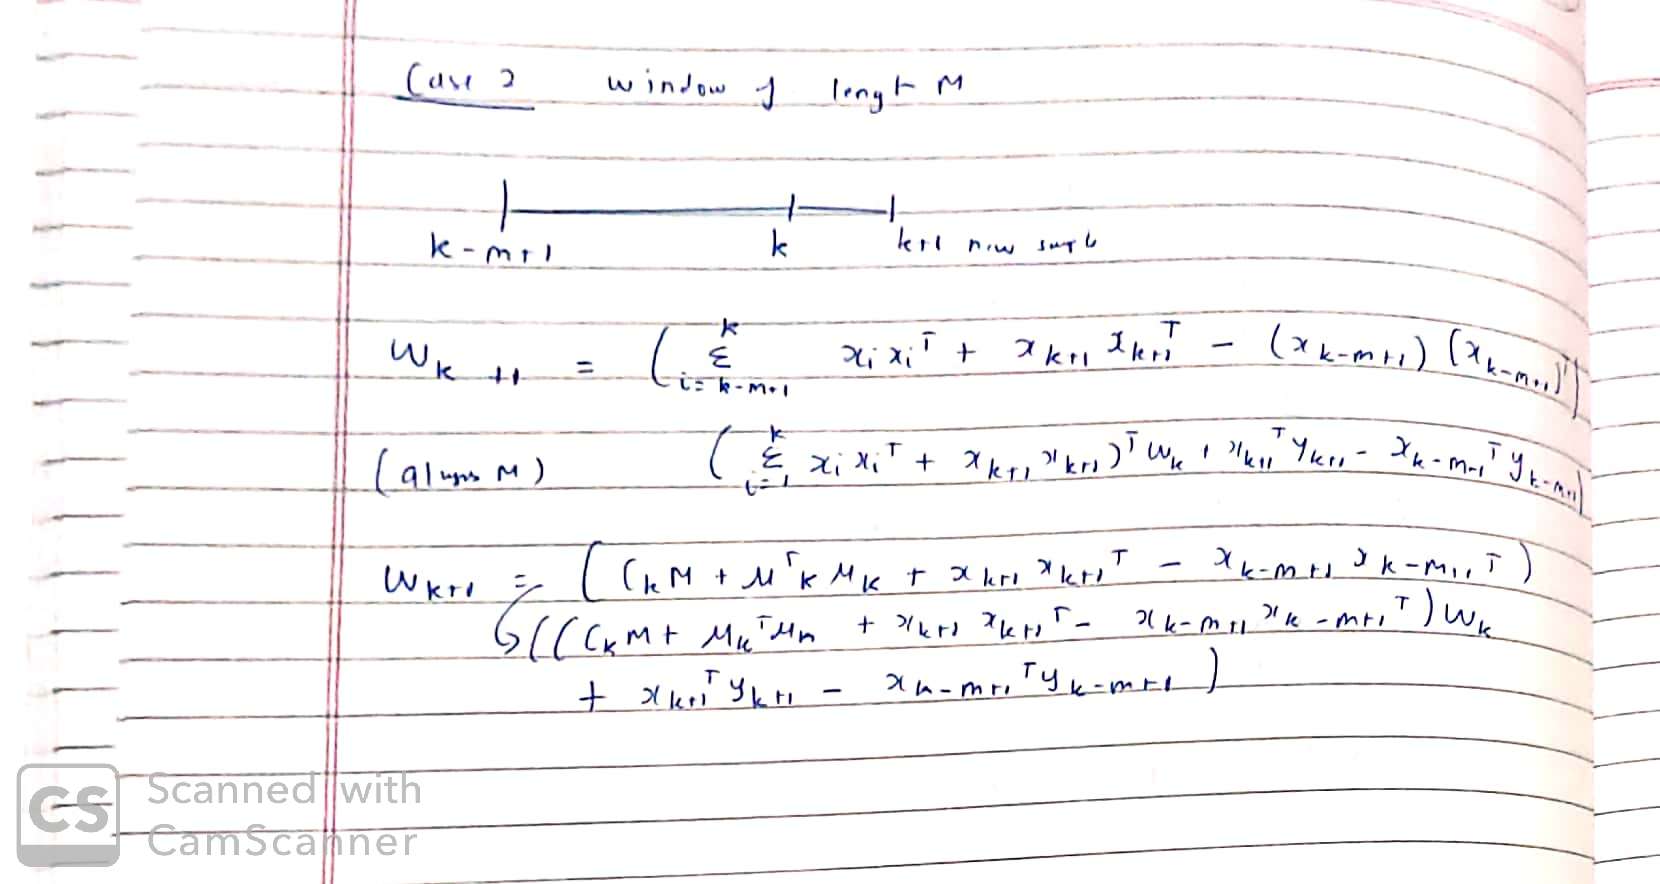 Case 2 window of lengt M
k-m+1 k k+1 new
W_{k+1} = ( Σ_{i=k-m+1}^{k} x_i x_i^T + x_{k+1} x_{k+1}^T - (x_{k-m+1}) (x_{k-m+1})^T )
( M) ( Σ_{i=1}^{k} x_i x_i^T + x_{k+1} x_{k+1} )^T W_k + x_{k+1}^T y_{k+1} - x_{k-m+1}^T y_{k-m+1} )
W_{k+1} = ( C_k M + μ^T_k μ_k + x_{k+1} x_{k+1}^T - x_{k-m+1} x_{k-m+1}^T )
↳ ( ( ( C_k M + μ_k^T μ_k + x_{k+1} x_{k+1}^T - x_{k-m+1} x_{k-m+1}^T ) W_k
+ x_{k+1}^T y_{k+1} - x_{k-m+1}^T y_{k-m+1} )
CS Scanned with
CamScanner